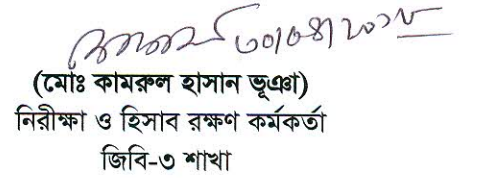 (মোঃ কামরুল হাসান ভূঞা)
নিরীক্ষা ও হিসাব রক্ষণ কর্মকর্তা
জিবি-৩ শাখা